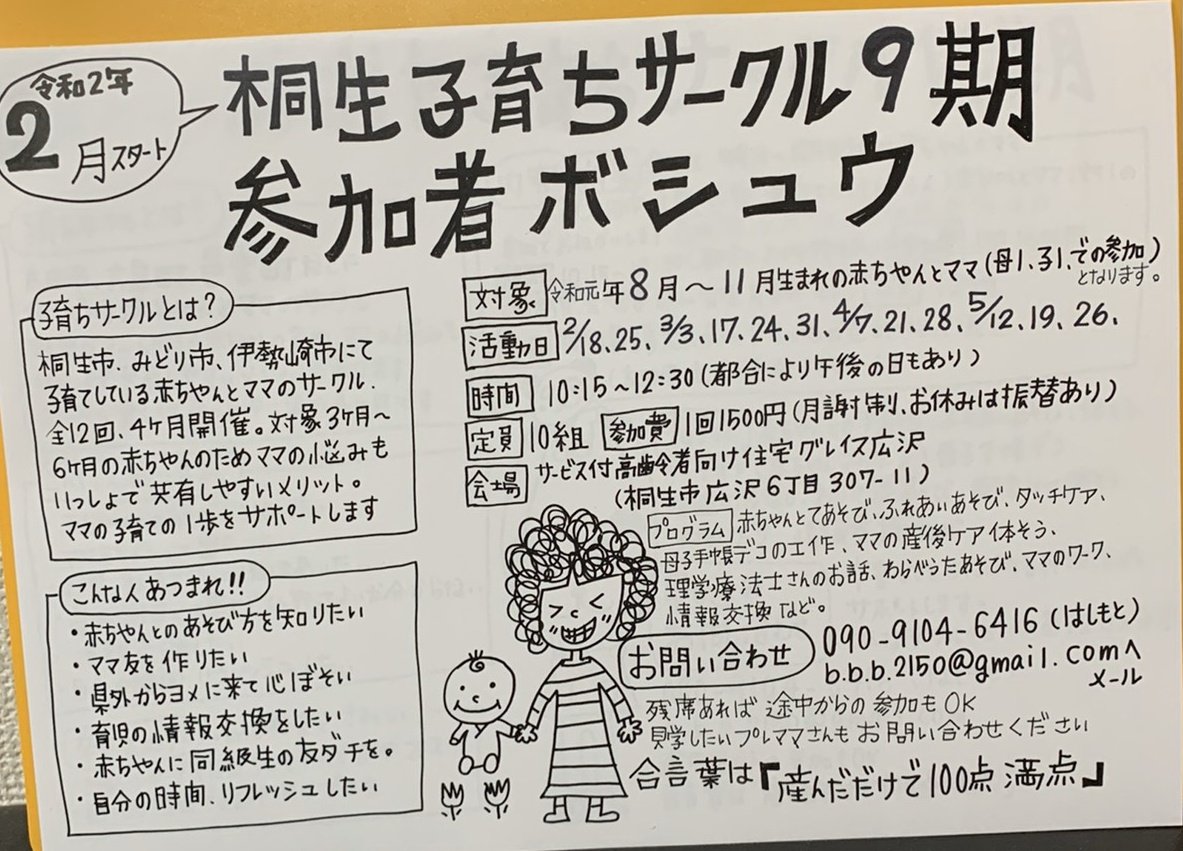 令和2年
2月スタート
桐生子育ちサークル9期
参加者ボシュウ
子育ちサークルとは?
桐生市、みどり市、伊勢崎市にて
子育てしている赤ちゃんとママのサークル.
全12回、4ヶ月開催。対象3ヶ月〜
6ヶ月の赤ちゃんのためママの悩みも
いっしょで共有しやすいメリット。
ママの子育ての1歩をサポートします
こんな人あつまれ!!
・赤ちゃんとのあそび方を知りたい
・ママ友を作りたい
・県外からヨメに来て心ぼそい
・育児の情報交換をしたい
・赤ちゃんに同級生の友ダチを。
・自分の時間、リフレッシュしたい
対象 令和元年8月〜11月生まれの赤ちゃんとママ(母1、子1、での参加)
となります。
活動日 2/18、25、3/3、17、24、31、4/7、21、28、5/12、19、26、
時間 10:15〜12:30(都合により午後の日もあり)
定員 10組 参加費 1回1500円(月謝制、お休みは振替あり)
会場 サービス付高齢者向け住宅グレイス広沢
(桐生市広沢6丁目307-11)
プログラム 赤ちゃんとてあそび、ふれあいあそび、タッチケア、
母子手帳デコの工作、ママの産後ケア体そう、
理学療法士さんのお話、わらべうたあそび、ママのワーク、
情報交換など。
お問い合わせ 090-9104-6416(はしもと)
b.b.b.2150@gmail.comへ
メール
残席あれば途中からの参加もOK
見学したいプレママさんもお問い合わせください
合言葉は『産んだだけで100点満点』